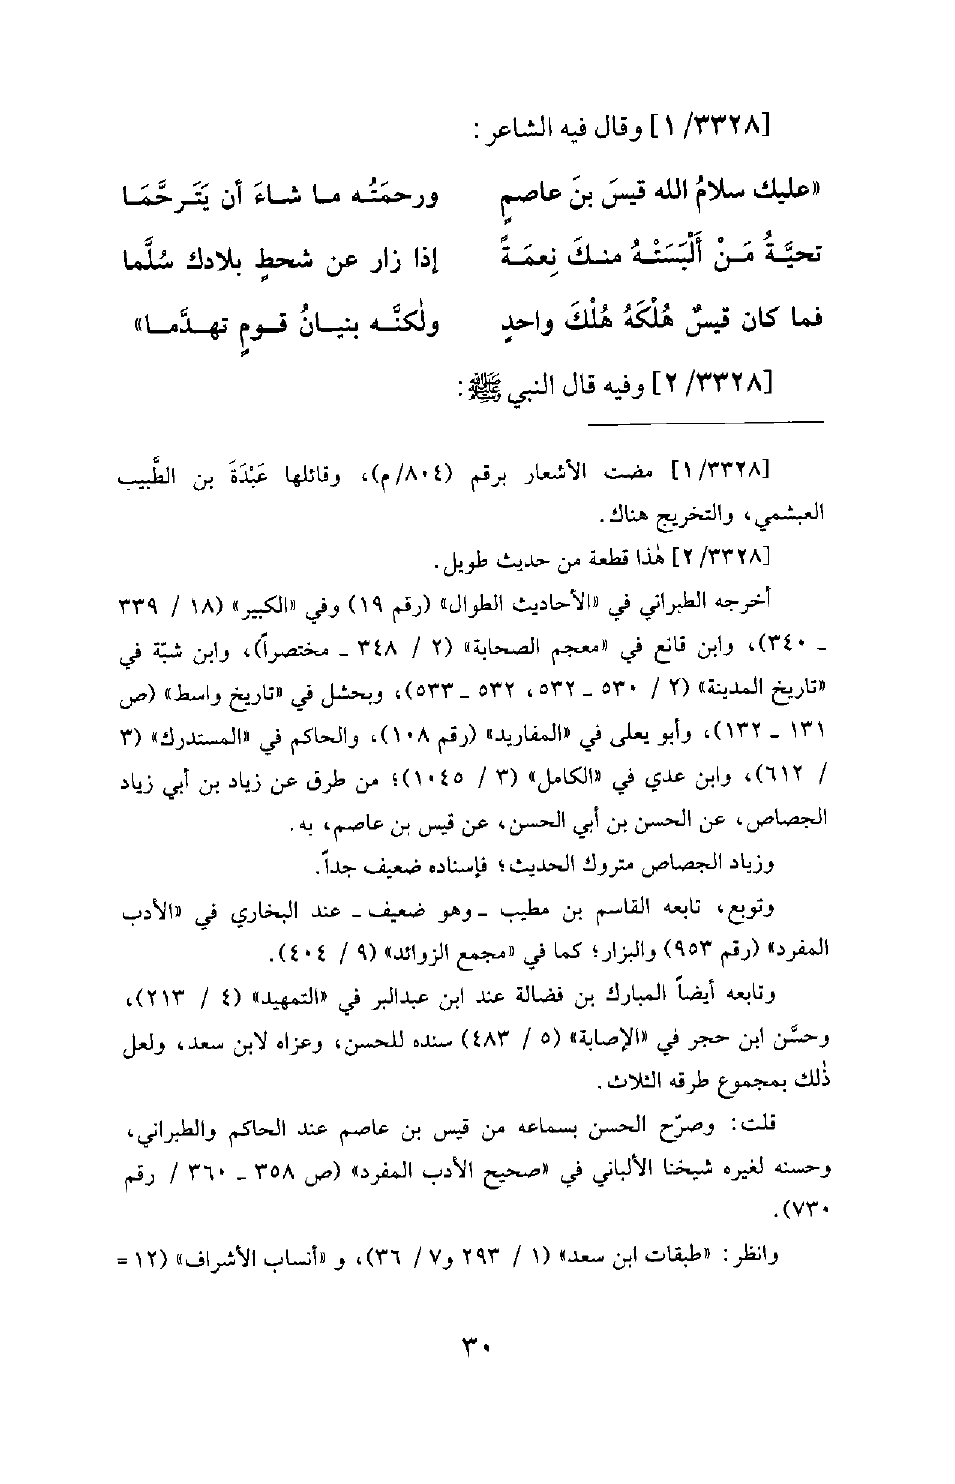 [٣٣٢٨/ ١] وقال فيه الشاعر :
«عليك سلامُ الله قيسَ بنَ عاصمٍ ورحمَتُـه مـا شـاءَ أن يَتَـرحَّمَـا
تحيَّـةُ مَـنْ أَلْبَسَتْـهُ منـكَ نِعمَـةً إذا زار عن شحطٍ بلادك سُلَّما
فما كان قيسٌ هُلْكَهُ هُلْكَ واحدٍ ولٰكنَّـه بنيـانُ قـومٍ تهـدَّمـا»
[٣٣٢٨/ ٢] وفيه قال النبي ﷺ :
[٣٣٢٨/ ١] مضت الأشعار برقم (٨٠٤/ م)، وقائلها عَبْدَةَ بن الطَّبيب
العبشمي، والتخريج هناك.
[٣٣٢٨/ ٢] هٰذا قطعة من حديث طويل.
أخرجه الطبراني في «الأحاديث الطوال» (رقم ١٩) وفي «الكبير» (١٨ / ٣٣٩
ـ ٣٤٠)، وابن قانع في «معجم الصحابة» (٢ / ٣٤٨ ـ مختصراً)، وابن شبّة في
«تاريخ المدينة» (٢ / ٥٣٠ ـ ٥٣٢، ٥٣٢ ـ ٥٣٣)، وبحشل في «تاريخ واسط» (ص
١٣١ ـ ١٣٢)، وأبو يعلى في «المفاريد» (رقم ١٠٨)، والحاكم في «المستدرك» (٣
/ ٦١٢)، وابن عدي في «الكامل» (٣ / ١٠٤٥)؛ من طرق عن زياد بن أبي زياد
الجصاص، عن الحسن بن أبي الحسن، عن قيس بن عاصم، به.
وزياد الجصاص متروك الحديث؛ فإسناده ضعيف جداً.
وتوبع، تابعه القاسم بن مطيب ـ وهو ضعيف ـ عند البخاري في «الأدب
المفرد» (رقم ٩٥٣) والبزار؛ كما في «مجمع الزوائد» (٩ / ٤٠٤).
وتابعه أيضاً المبارك بن فضالة عند ابن عبدالبر في «التمهيد» (٤ / ٢١٣)،
وحسَّن ابن حجر في «الإصابة» (٥ / ٤٨٣) سنده للحسن، وعزاه لابن سعد، ولعل
ذٰلك بمجموع طرقه الثلاث.
قلت: وصرّح الحسن بسماعه من قيس بن عاصم عند الحاكم والطبراني،
وحسنه لغيره شيخنا الألباني في «صحيح الأدب المفرد» (ص ٣٥٨ ـ ٣٦٠ / رقم
٧٣٠).
وانظر: «طبقات ابن سعد» (١ / ٢٩٣ و٧ / ٣٦)، و «أنساب الأشراف» (١٢ =
٣٠